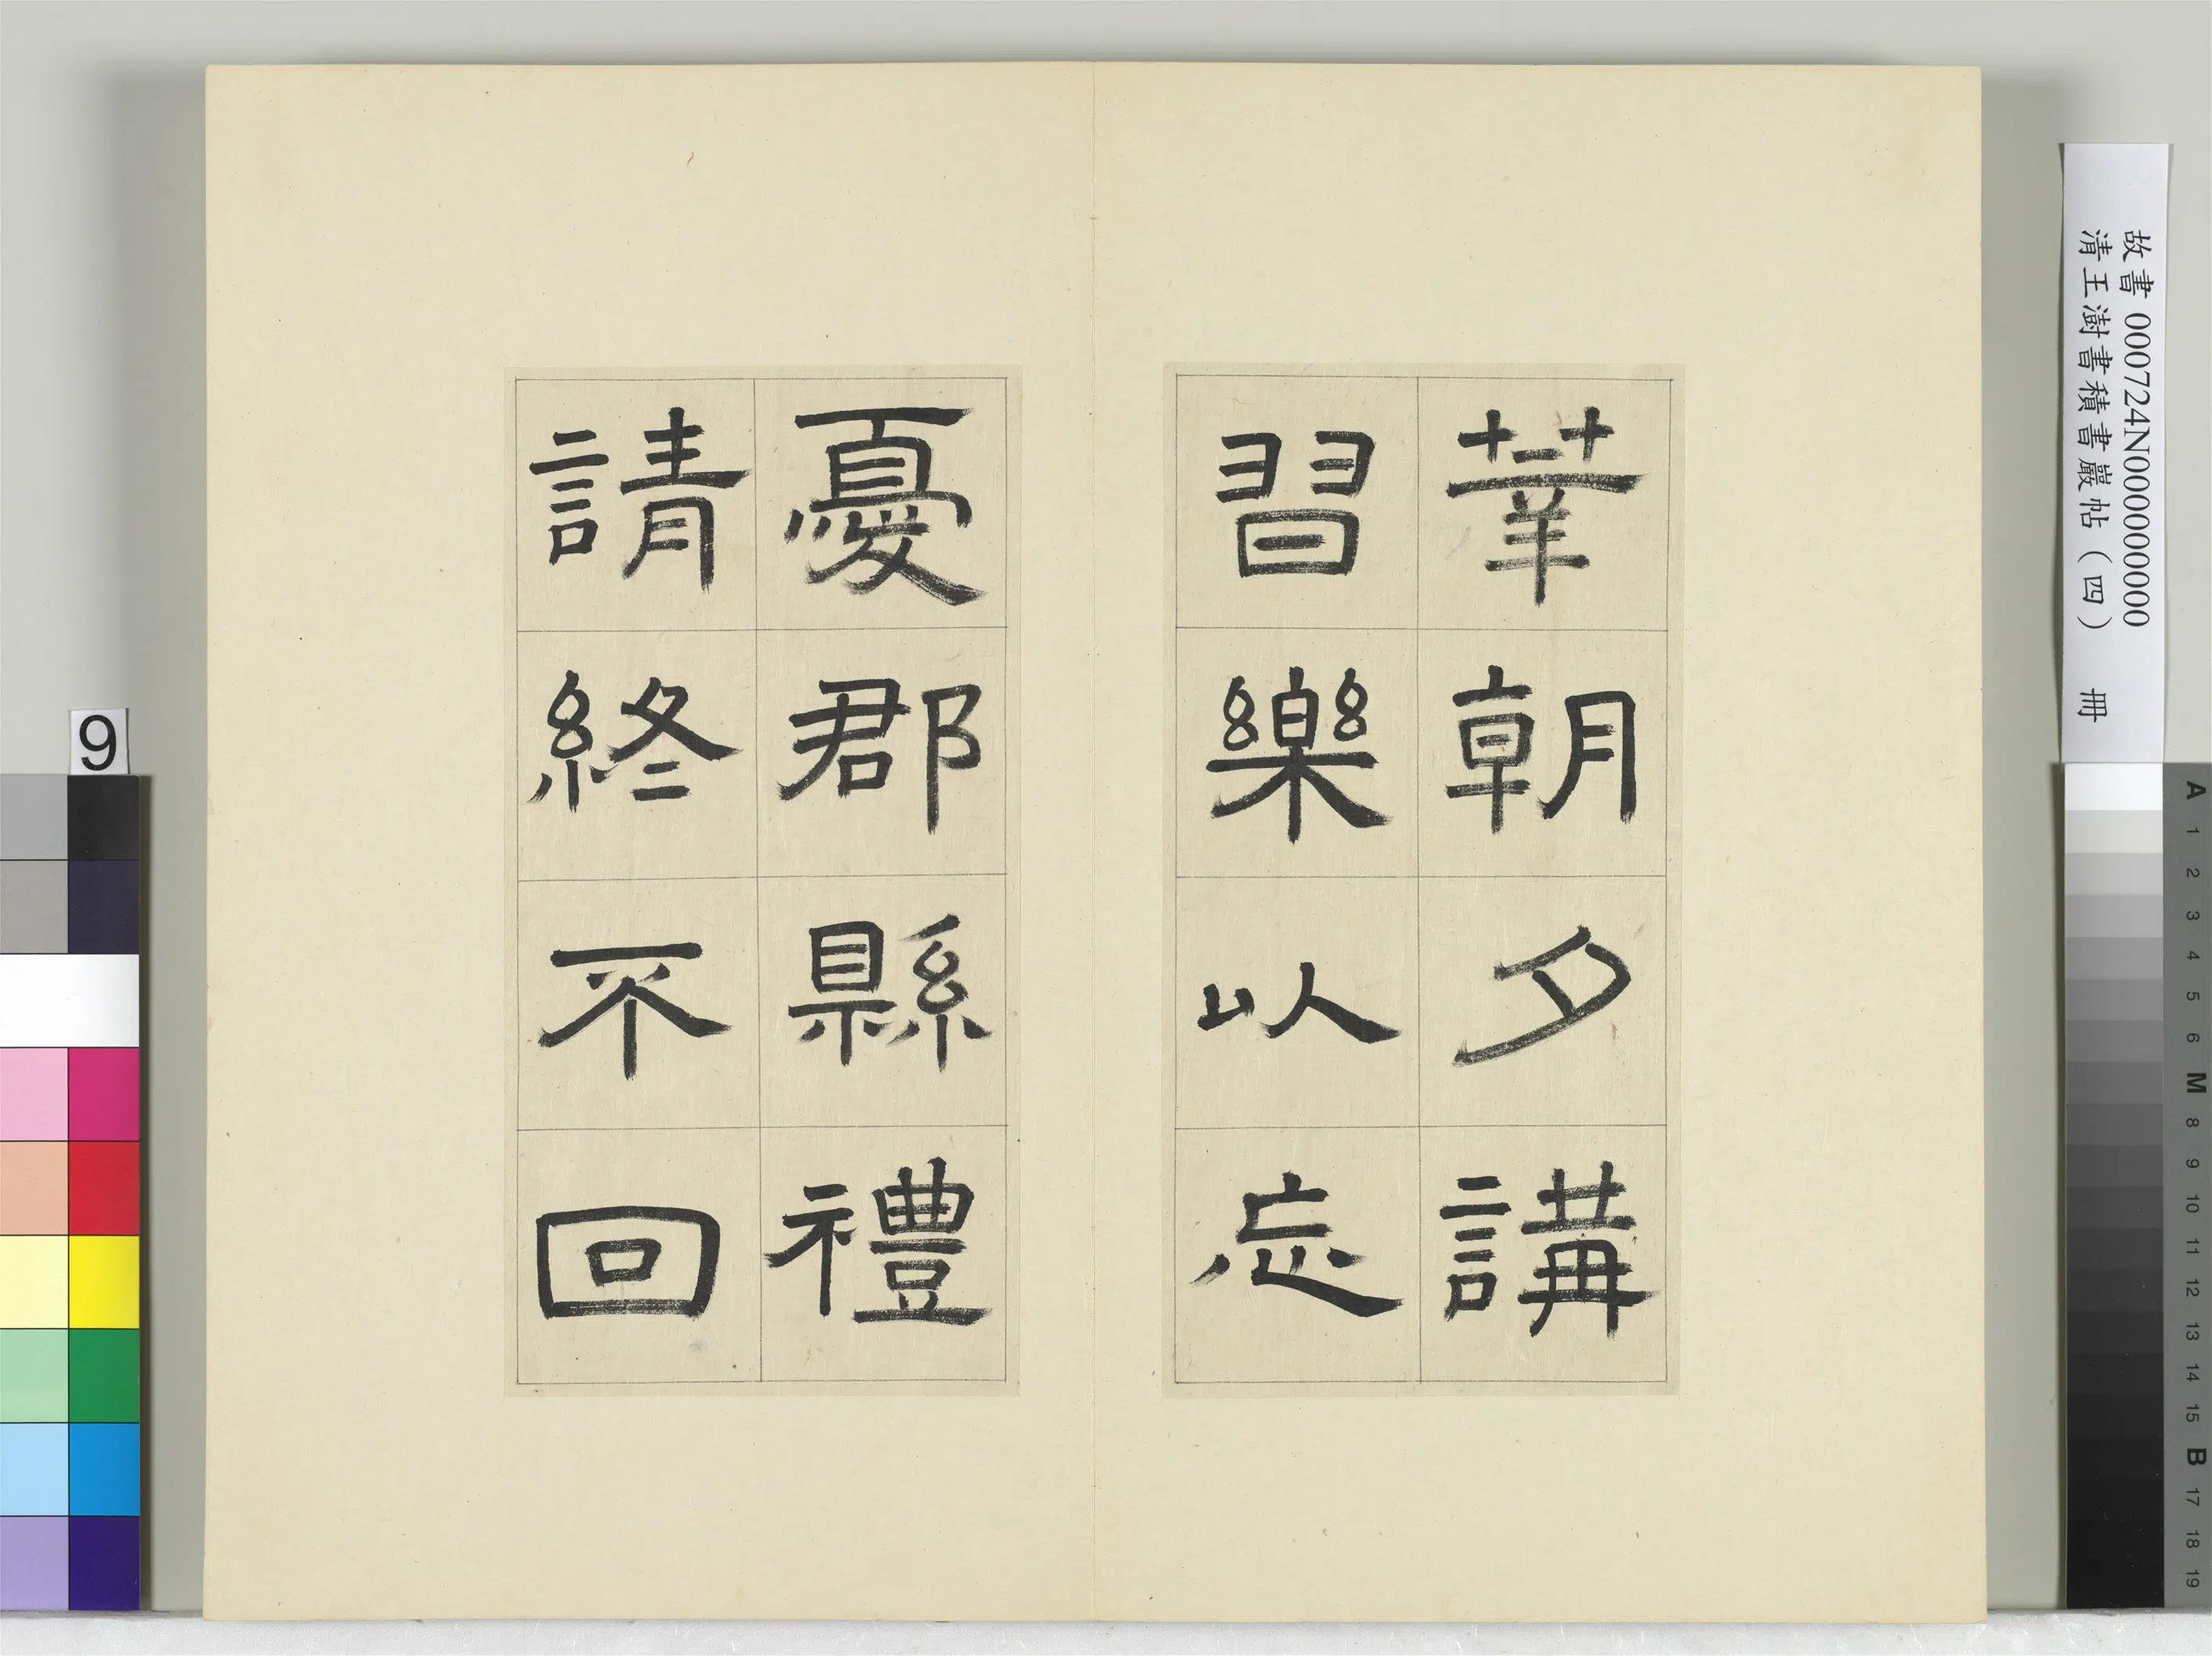 業朝夕講
習樂以忘
憂郡縣禮
請終不回
故書 000724N000000000
清王澍書積書巖帖（四） 冊
9
A 1 2 3 4 5 6 M 8 9 10 11 12 13 14 15 B 17 18 19